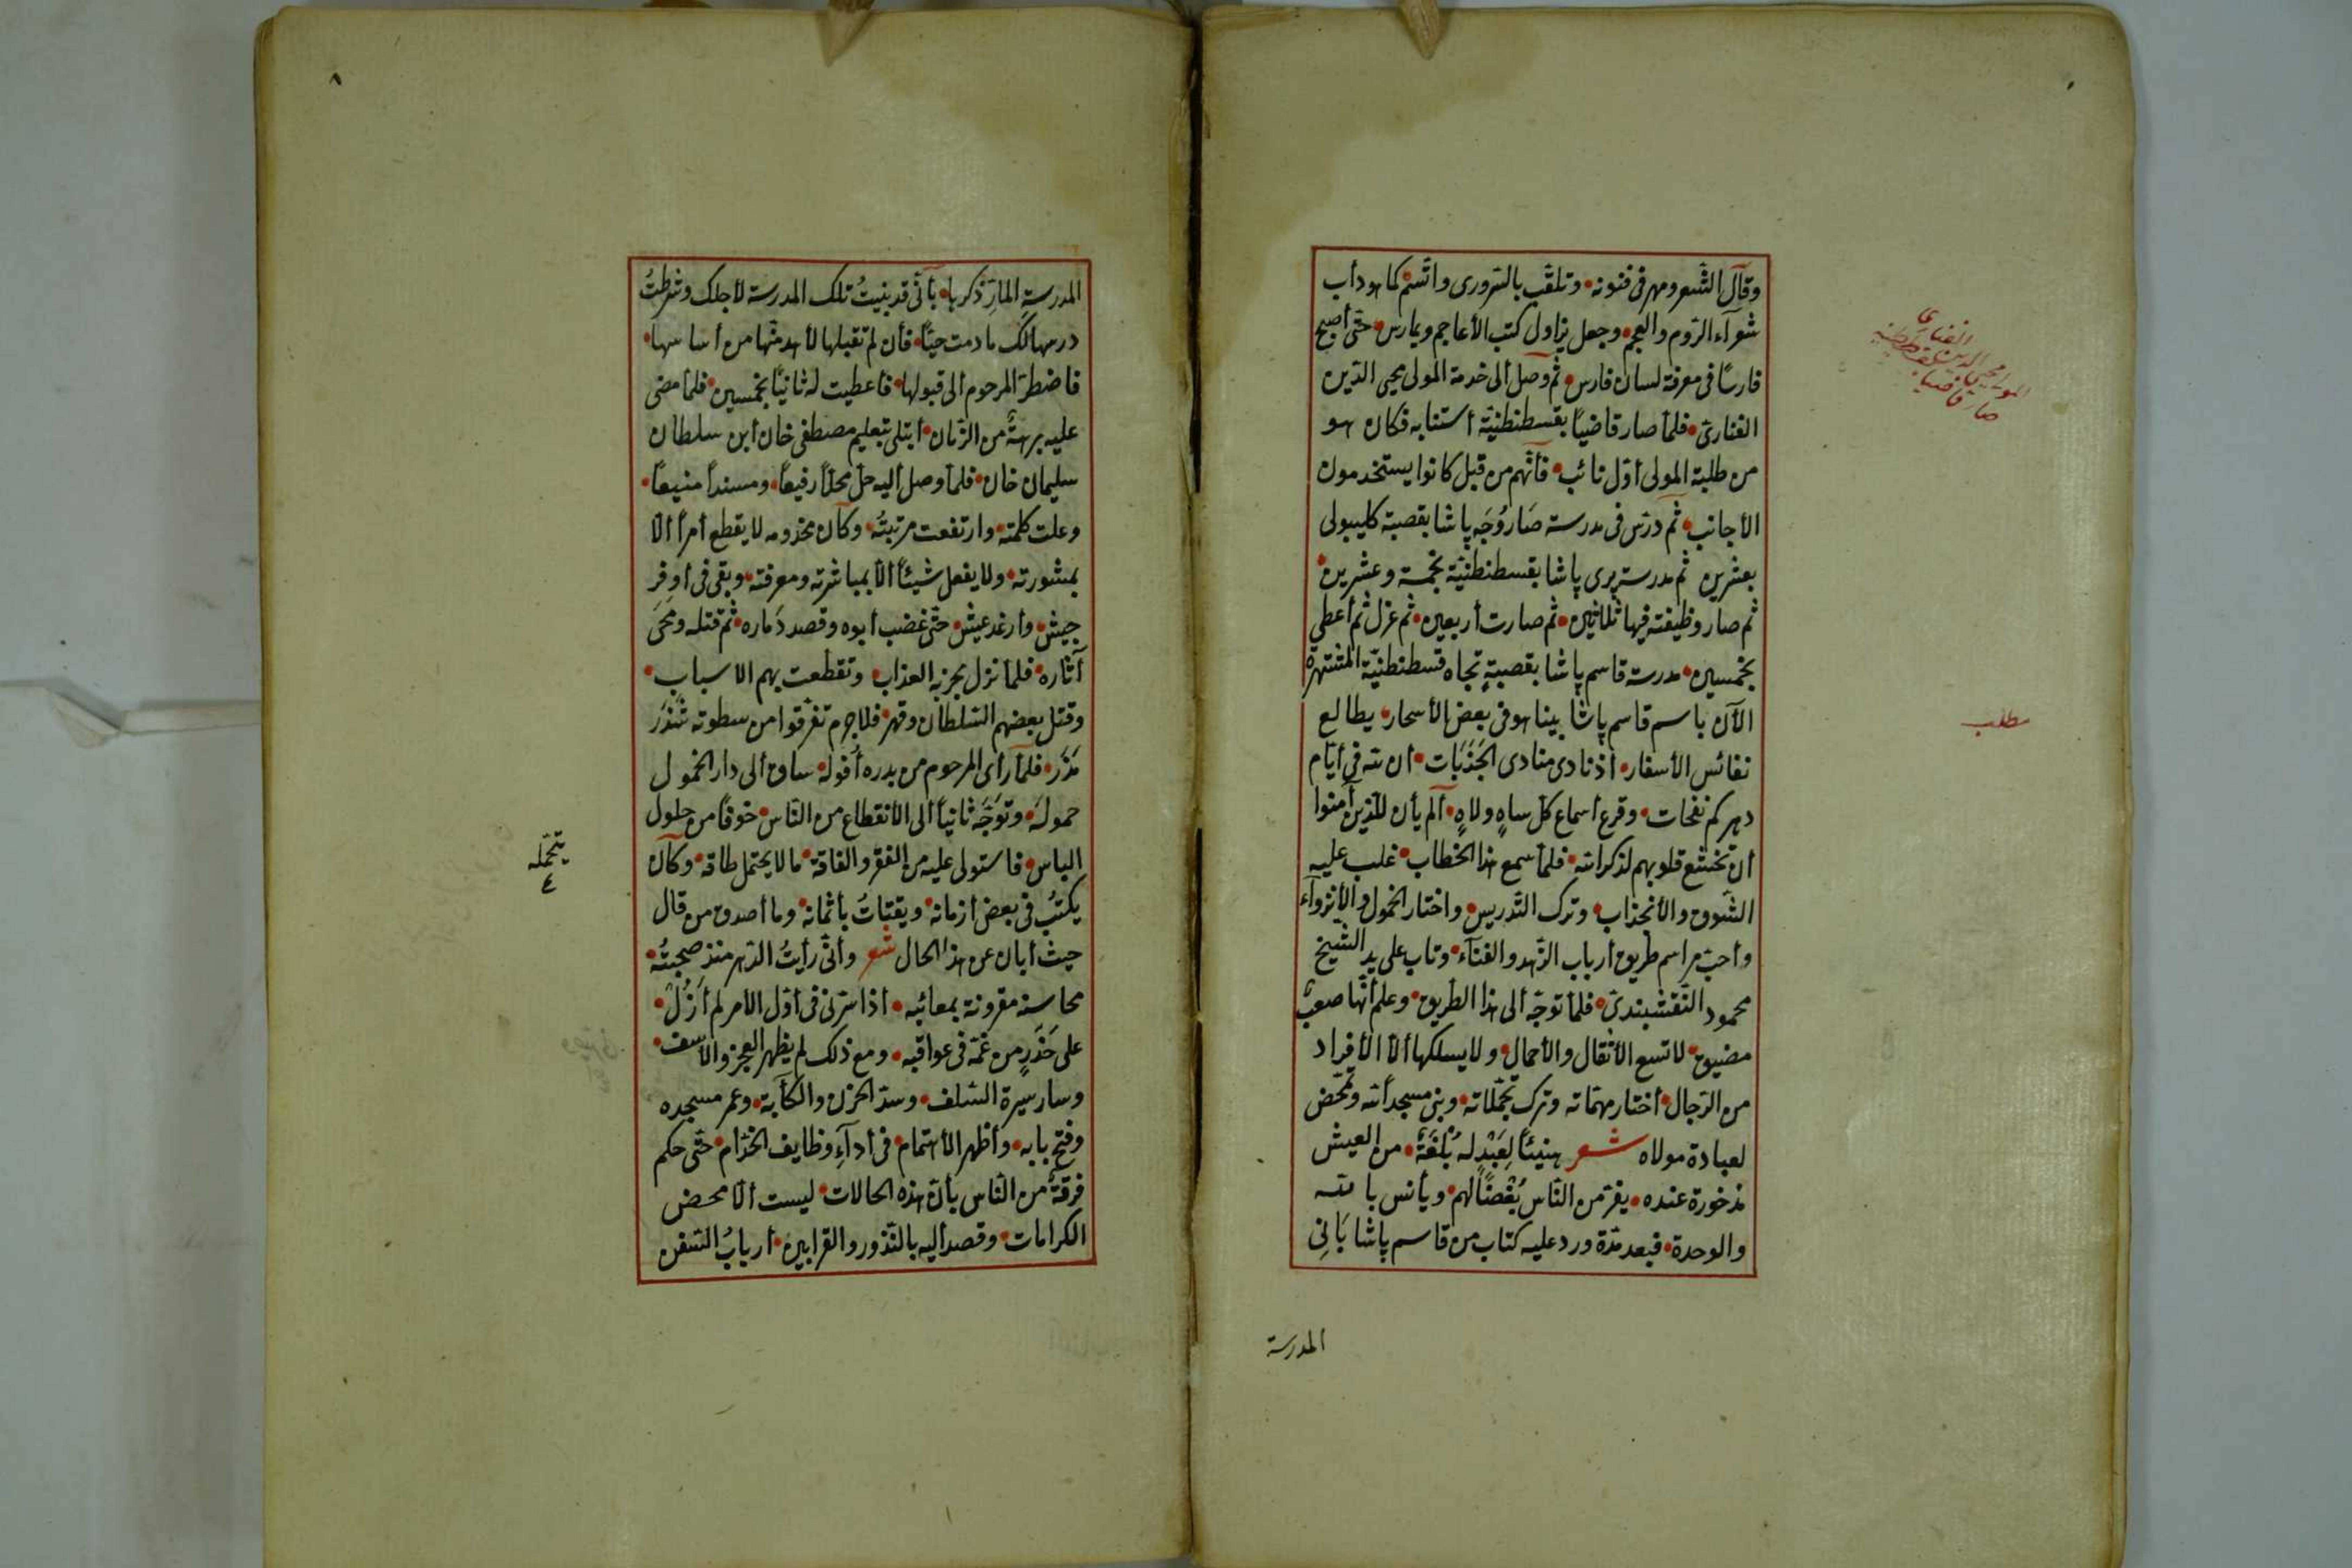 وقال الشعر ومهر فى فنونه وتلقب بالسرورى واتسم كما هو دأب
شعرآء الروم والعجم وجعل يزاول كتب الأعاجم ويمارس حتى أصبح
فارسًا فى معرفة لسان فارس ثم وصل ألى خدمة المولى محيى الدين
الفنارى فلما صار قاضيًا بقسطنطنية أستنابه فكان هو
من طلبة المولى أول نائب فأنهم من قبل كانوا يستخدمون
الأجانب ثم درس فى مدرسة صَاروُجَه پاشا بقصبة كليبولى
بعشرين ثم مدرسة پرى پاشا بقسطنطنية بخمسة وعشرين
ثم صار وظيفته فيها ثلاثين ثم صارت أربعين ثم عزل ثم أعطى
بخمسين مدرسة قاسم پاشا بقصبةٍ تجاه قسطنطنية المشتهرة
الآن باسم قاسم پاشا بينا هو فى بعض الأسحار يطالع
نفائس الأسفار أذ نادى منادى الجَذَبَات أن لله فى أيام
دهركم نفحات وقرع أسماع كل ساهٍ ولاهٍ ألم يأن للذين آمنوا
أن تخشع قلوبهم لذكر الله فلما سمع هذا الخطاب غلب عليه
الشوق والأنجذاب وترك التدريس واختار الخمول والأنزوآء
وأحب مراسم طريق أرباب الزهد والفنآء وتاب على يد الشيخ
محمود النقشبندى فلما توجه ألى هذا الطريق وعلم أنها صعب
مضيق لا تسع الأثقال والأحمال ولا يسلكها ألا الأفراد
من الرجال أختار مهماته وترك تجملاته وبنى مسجدًا لله وتمحض
لعبادة مولاه شعر هنيئًا لِعَبْدٍ له بُلْغَةٌ من العيش
مذخورة عنده يفر من الناس بُغْضًا لهم ويأنس بالله
والوحدة فبعد مدة ورد عليه كتاب من قاسم پاشا بَانِى
المدرسة
المولى محيى الدين الفنارى
صار قاضيا بقسطنطنية
مطلب
٨
المدرسةِ المارِّ ذكرها بأنى قد بنيتُ تلك المدرسة لأجلك وشرطتُ
درسها لك ما دمت حيًا فأن لم تقبلها لأهدمنها من أساسها
فاضطر المرحوم ألى قبولها فأعطيت له ثانيًا بخمسين فلما مضى
عليه برهةٌ من الزمان أبتلى بتعليم مصطفى خان أبن سلطان
سليمان خان فلما وصل أليه حل محلاً رفيعاً ومسنداً منيعاً
وعلت كلمته وارتفعت مرتبتُه وكان مخدومه لا يقطع أمرًا ألا
بمشورته ولا يفعل شيئًا ألا بمباشرته ومعرفته وبقى فى أوفر
جيش وأرغد عيش حتى غضب أبوه وقصد دَماره ثم قتله ومَحَى
آثاره فلما نزل بحزبه العذاب وتقطعت بهم الاسباب
وقتل بعضهم السلطان وقهر فلاجرم تفرقوا من سطوته شَذَرَ
مَذَر فلما رأى المرحوم من بدره أُفولَه ساق ألى دار الخمول
حمولَه وتوَجّه ثانياً ألى الأنقطاع من الناس خوفاً من حلول
الباس فاستولى عليه من الفقر والفاقة ما لا يحتمل طاقه وكان
يكتبُ فى بعض أزمانه ويقتاتُ بأثمانه وما أصدق من قال
حيث أبان عن هذا الحال شعر وأنى رأيتُ الدهر منذ صحبتُه
محاسنه مقرونة بمعائبه أذا سرّنى فى أول الأمر لم أَزُلْ
على حَذَرٍ من غمّه فى عواقبه ومع ذلك لم يظهر العجز والأسف
وسار سيرة السلف وستر الحزن والكآبة وعمر مسجده
وفتح بابه وأظهر الأهتمام فى أدآءِ وظايف الخدّام حتى حكم
فرقةٌ من الناس بأن هذه الحالات ليست ألا محض
الكرامات وقصد أليه بالنذور والقرابين أربابُ السفن
يتحمّله
٤